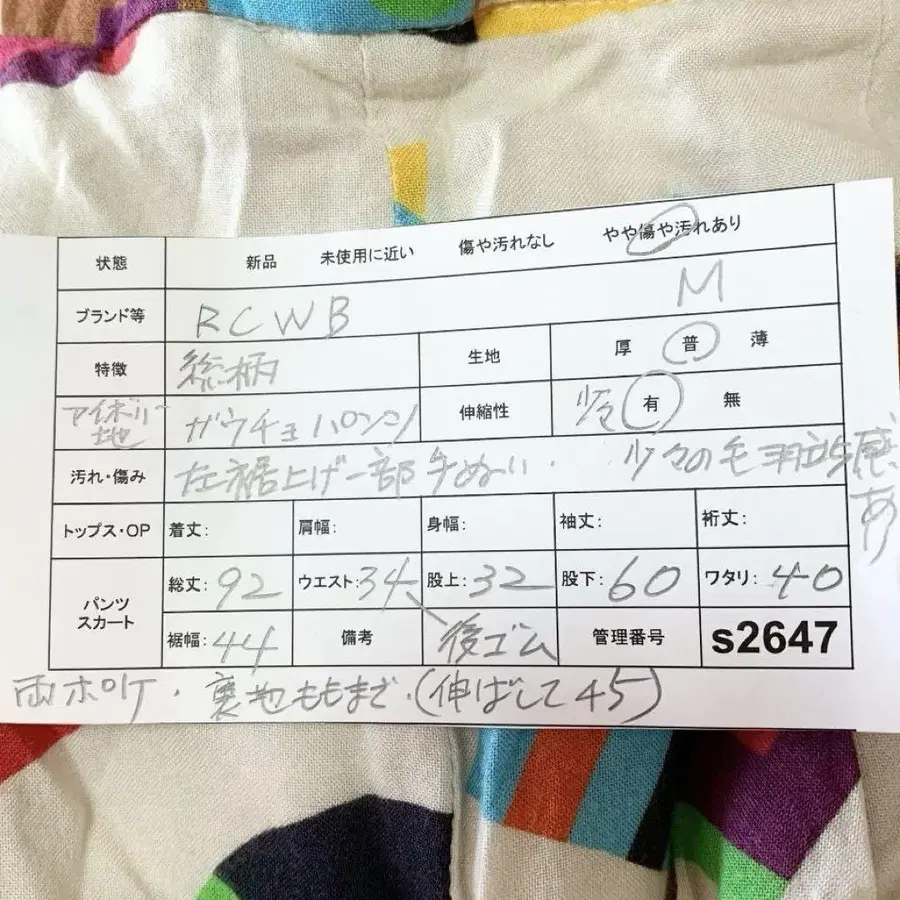 状態 新品 未使用に近い 傷や汚れなし やや傷や汚れあり
ブランド等 RCWB M
特徴 総柄 生地 厚 普 薄
アイボリー地 ガウチョパンツ 伸縮性 少々 有 無
汚れ・傷み 左裾上げ一部手ぬい・少々の毛羽立ち感あり
トップス・OP 着丈: 肩幅: 身幅: 袖丈: 裄丈:
パンツ スカート 総丈:92 ウエスト:34 股上:32 股下:60 ワタリ:40
裾幅:44 備考 後ゴム 管理番号 s2647
両ポケ・裏地ももまで・(伸ばして45)